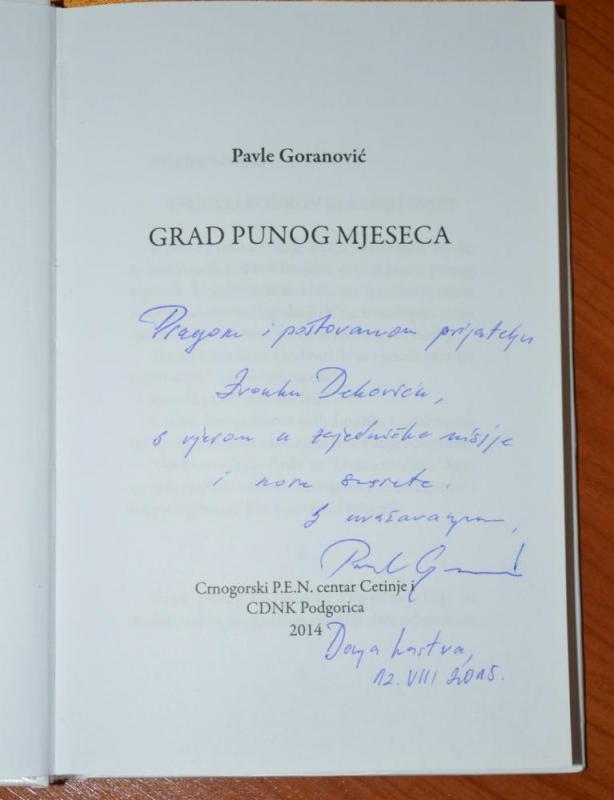 Pavle Goranović
GRAD PUNOG MJESECA
Dragom i poštovanom prijatelju
Zvonku Dekoviću,
s vjerom u zajedničke misije
i nove susrete.
S uvažavanjem,
Crnogorski P.E.N. centar Cetinje i
CDNK Podgorica
2014
Donja Lastva,
12. VIII 2015.